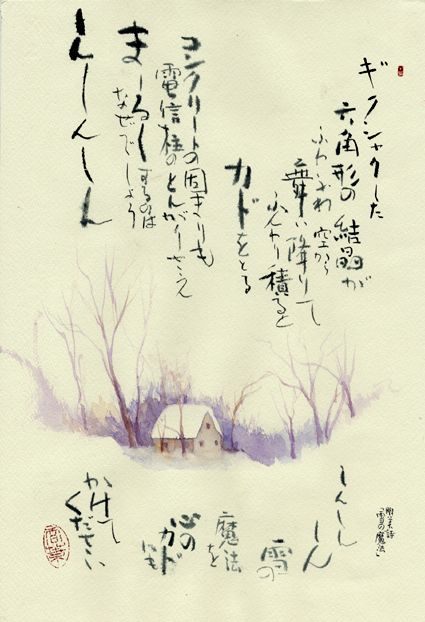 ギクシャクした
六角形の結晶が
ふわふわ空から
舞い降りて
ふんわり積ると
カドをとる
コンクリートの固まりも
電信柱のとんがりさえ
まーるくするのは
なぜでしょう
しんしんしん
しんしん
しん
雪の
魔法を
心の
カドにも
かけて
ください
「雪の魔法」